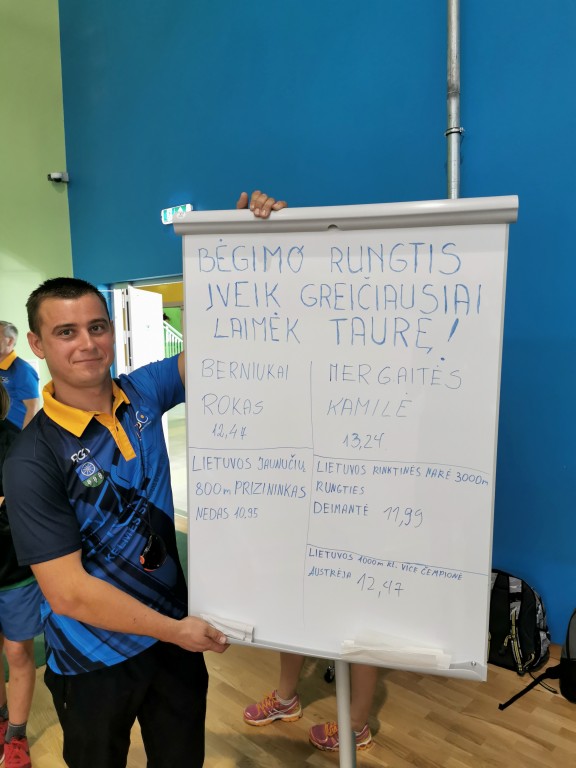 BĖGIMO RUNGTIS
ĮVEIK GREIČIAUSIAI
LAIMĖK TAURĘ!
BERNIUKAI
ROKAS
12,47
MERGAITĖS
KAMILĖ
13,24
LIETUVOS JAUNUČIŲ
800m PRIZININKAS
NEDAS 10,95
LIETUVOS RINKTINĖS NARĖ 3000m
RUNGTIES
DEIMANTĖ 11,99
LIETUVOS 1000m kl. VICE ČEMPIONĖ
AUSTĖJA 12,47